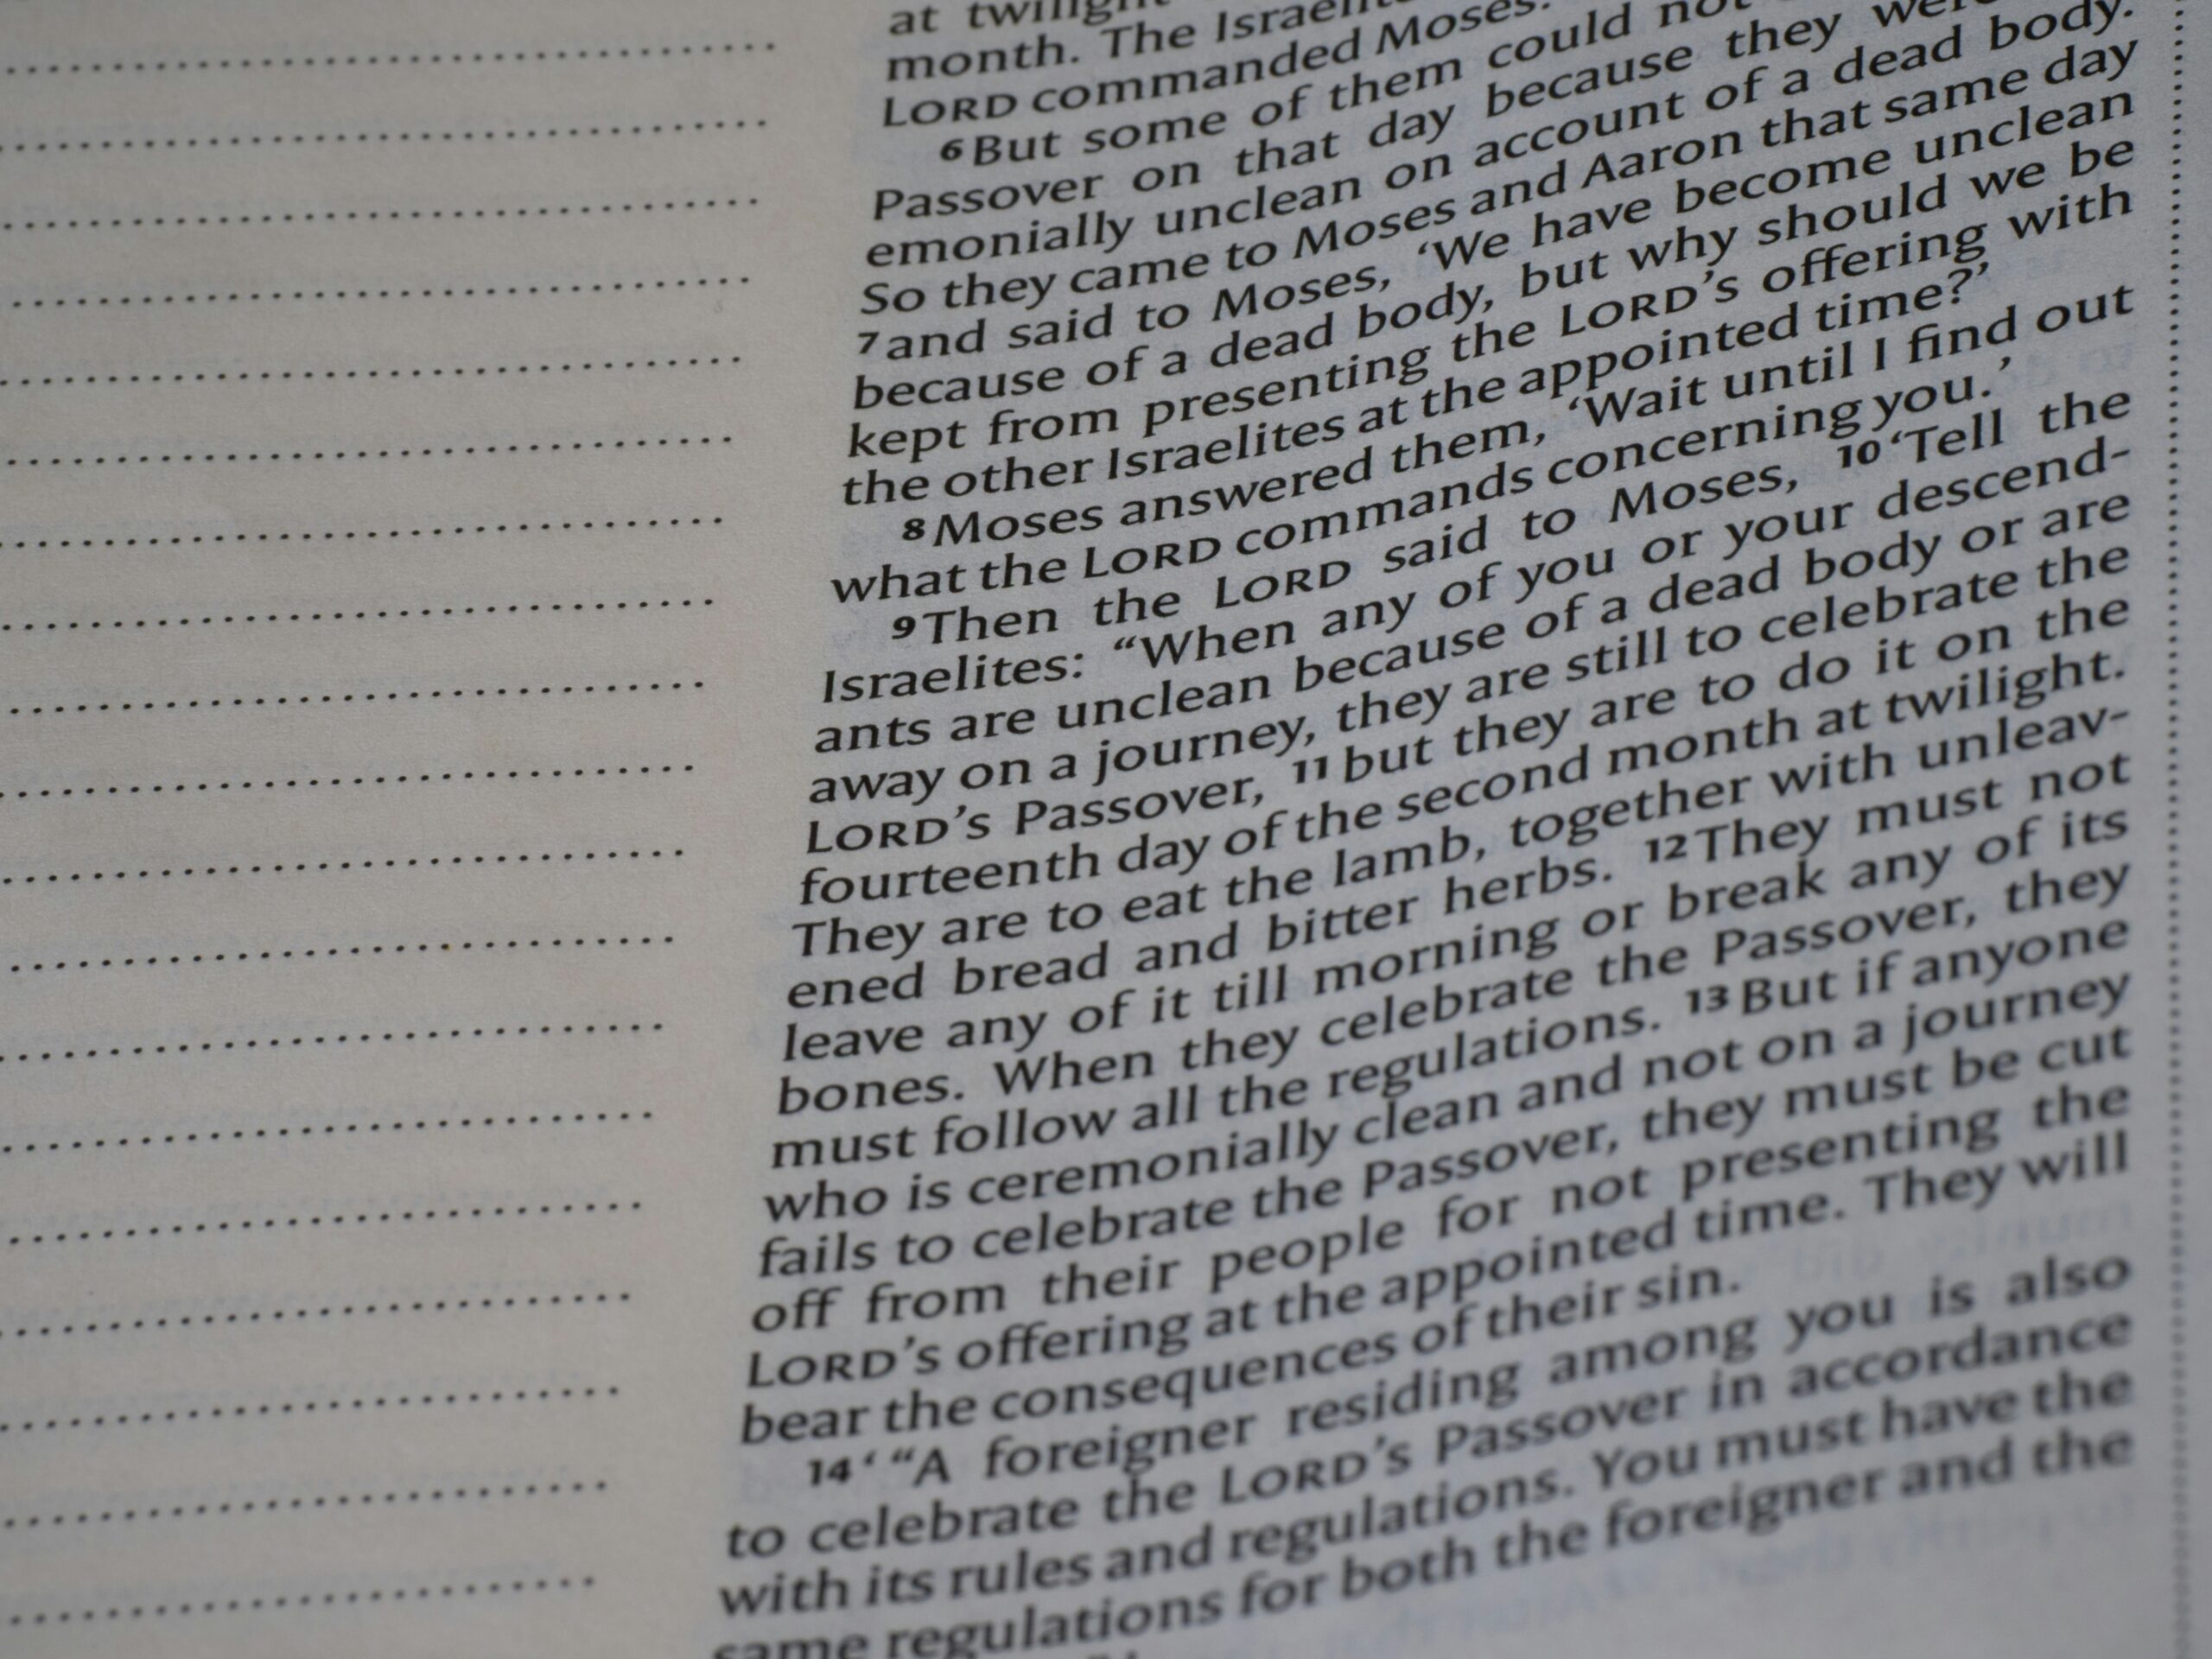 at twilight
month. The Israelit
LORD commanded Moses.
6 But some of them could not
Passover on that day because they were
emonially unclean on account of a dead body.
So they came to Moses and Aaron that same day
7 and said to Moses, ‘We have become unclean
because of a dead body, but why should we be
kept from presenting the LORD’s offering with
the other Israelites at the appointed time?’
8 Moses answered them, ‘Wait until I find out
what the LORD commands concerning you.’
9 Then the LORD said to Moses, 10 ‘Tell the
Israelites: “When any of you or your descend-
ants are unclean because of a dead body or are
away on a journey, they are still to celebrate the
LORD’s Passover, 11 but they are to do it on the
fourteenth day of the second month at twilight.
They are to eat the lamb, together with unleav-
ened bread and bitter herbs. 12 They must not
leave any of it till morning or break any of its
bones. When they celebrate the Passover, they
must follow all the regulations. 13 But if anyone
who is ceremonially clean and not on a journey
fails to celebrate the Passover, they must be cut
off from their people for not presenting the
LORD’s offering at the appointed time. They will
bear the consequences of their sin.
14 ‘ “A foreigner residing among you is also
to celebrate the LORD’s Passover in accordance
with its rules and regulations. You must have the
same regulations for both the foreigner and the